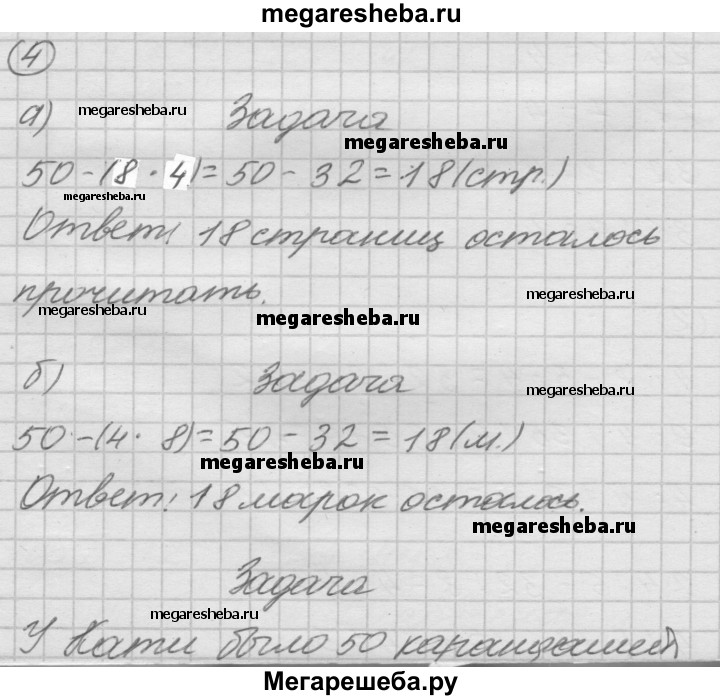 megaresheba.ru
4
а) megaresheba.ru Задача
megaresheba.ru
50-(8·4)=50-32=18(стр.)
megaresheba.ru
Ответ: 18 страниц осталось
прочитать. megaresheba.ru
megaresheba.ru
megaresheba.ru
б) Задача megaresheba.ru
50-(4·8)=50-32=18(м.)
megaresheba.ru
Ответ: 18 марок осталось.
megaresheba.ru
Задача
megaresheba.ru
У Кати было 50 карандашей
Мегарешеба.ру